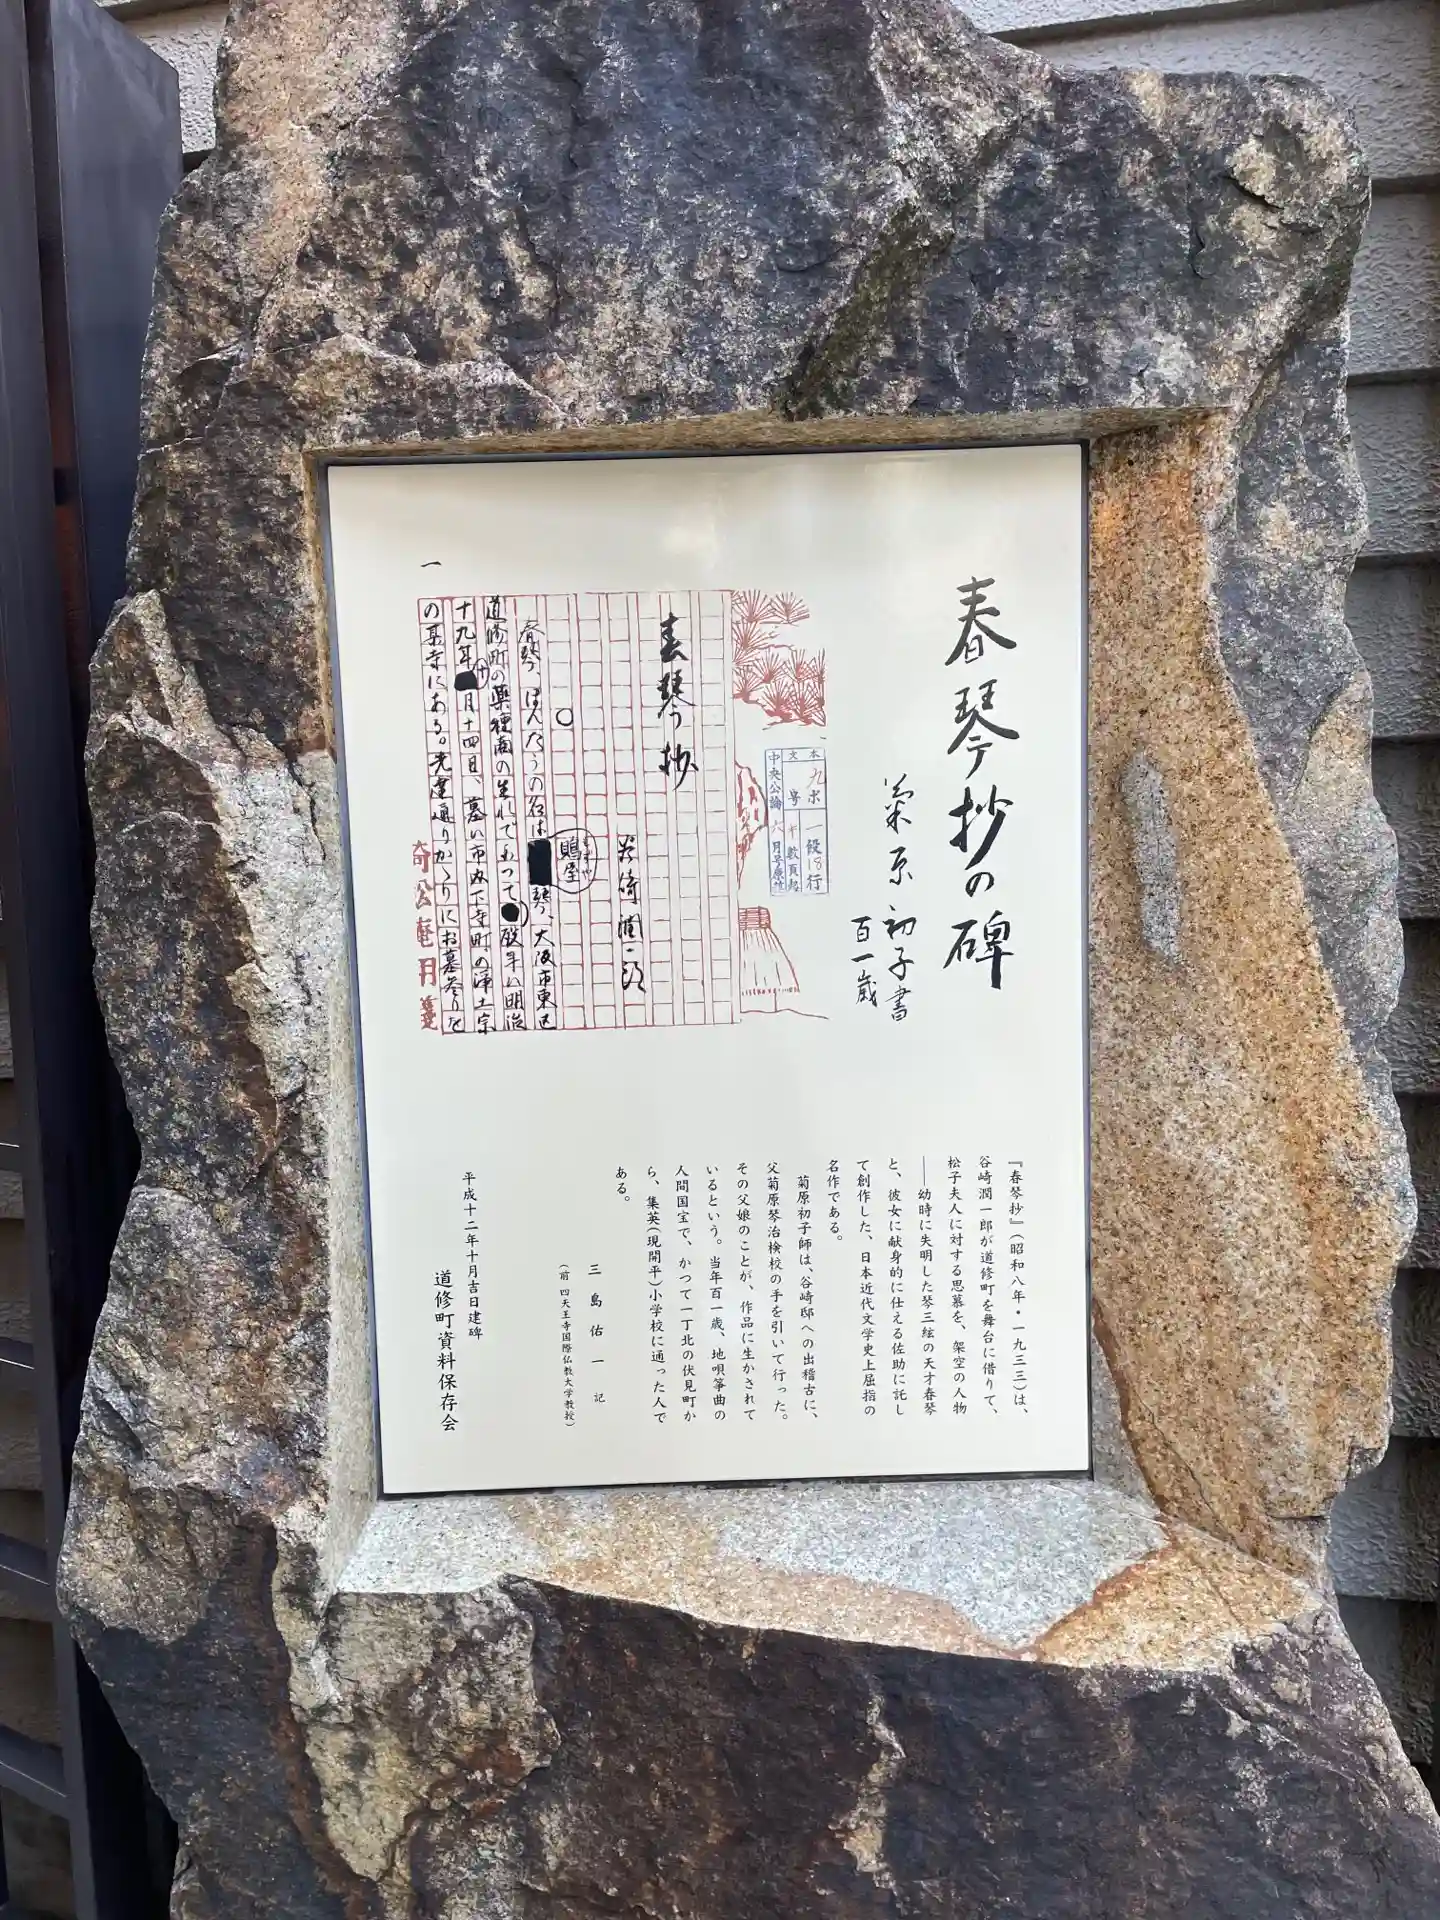 春琴抄の碑
菊原初子書
百一歳
本文
九ポ
一段18行
中央公論
六月号原稿
春琴抄
谷崎潤一郎
一
○
春琴、ほんたうの名は
鵙屋
もずや
琴、大阪市東区
道修町の薬種商の生れであつて
歿年は明治
十九年
十
月十四日、墓は市内下寺町の浄土宗
の某寺にある。先達通りかゝりにお墓参りを
倚松庵用箋
『春琴抄』(昭和八年・一九三三)は、
谷崎潤一郎が道修町を舞台に借りて、
松子夫人に対する思慕を、架空の人物
――幼時に失明した琴三絃の天才春琴
と、彼女に献身的に仕える佐助に託し
て創作した、日本近代文学史上屈指の
名作である。
菊原初子師は、谷崎邸への出稽古に、
父菊原琴治検校の手を引いて行った。
その父娘のことが、作品に生かされて
いるという。当年百一歳、地唄箏曲の
人間国宝で、かつて一丁北の伏見町か
ら、集英(現開平)小学校に通った人で
ある。
三島佑一 記
(前 四天王寺国際仏教大学教授)
平成十二年十月吉日建碑
道修町資料保存会